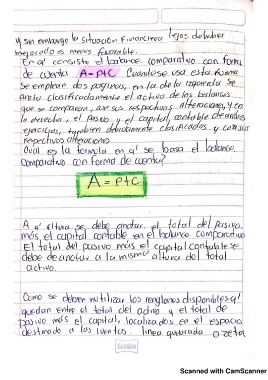 y sin embargo la situación financiera lejos de haber
mejorado es menos favorable.
En q' consiste el balance comparativo con forma
de cuenta A=P+C Cuando se usa esta forma
se emplean dos páginas, en la de la izquierda se
anota clasificadamente el activo de los balances
que se comparan, con sus respectivas alteraciones, y en
la derecha, el pasivo y el capital contable de ambos
ejercicios, también debidamente clasificados y con sus
respectivas alteraciones
Cual es la formula en q' se basa el balance
comparativo con forma de cuenta?
A = P+C
A q' altura se debe anotar el total del pasivo
más el capital contable en el balance comparativo
El total del pasivo más el capital contable se
debe de anotar a la misma altura del total
activo.
Como se deben utilizar los renglones disponibles q'
quedan entre el total del activo y el total de
pasivo más el capital, localizados en el espacio
destinado a las cuentas. linea quebrada o zeta
Scribe
Scanned with CamScanner